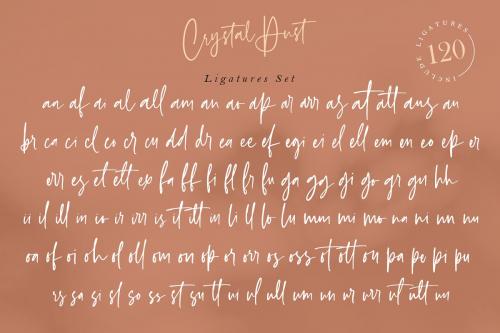 Crystal Dust
INCLUDE LIGATURES 120
Ligatures Set
aa af ai al all am an ao ap ar arr as at att aus au
br ca ci cl co cr cu dd dr ea ee ef egi ei el ell em en eo ep er
err es et ett ex fa ff fi fl fr fu ga gg gi go gr gu hh
ii il ill in io ir irr is it itt iu li ll lo lu mm mi mo na ni nn nu
oa of oi oh ol oll om on op or orr os oss ot ott ou pa pe pi pu
rs sa si sl so ss st su tt ui ul ull um un ur urr ut utt uu